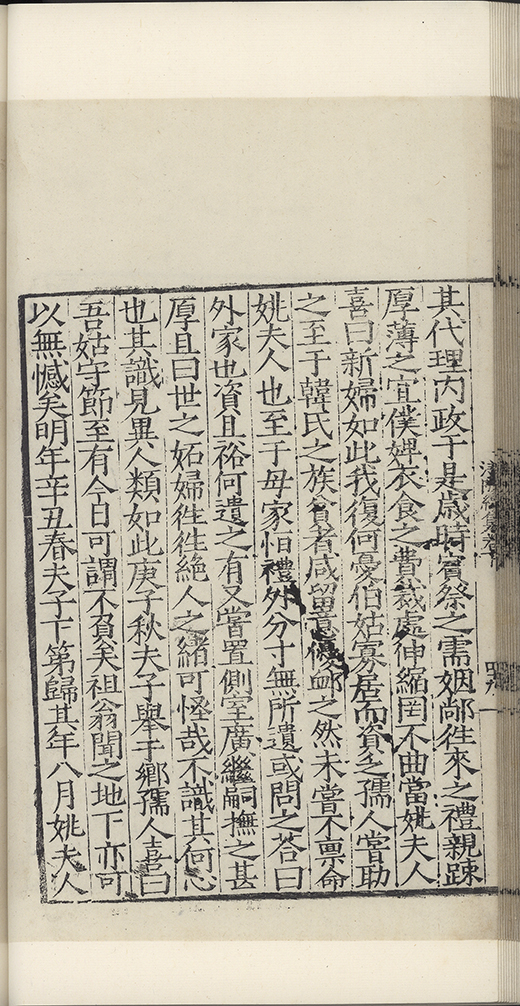 其代理内政于是歲時賓祭之需姻鄰徃來之禮親踈
厚薄之宜僕婢衣食之費裁處伸縮罔不曲當姚夫人
喜曰新婦如此我復何憂伯姑寡居而貧乏孺人嘗助
之至于韓氏之族貧者咸留意優䘏之然未嘗不禀命
姚夫人也至于母家怕禮外分寸無所遺或問之荅曰
外家也資且裕何遺之有又嘗置側室廣繼嗣撫之甚
厚且曰世之妬婦徃徃絶人之緒可怪哉不識其何心
也其識見異人類如此庚子秋夫子舉于鄉孺人喜曰
吾姑守節至有今日可謂不負矣祖翁聞之地下亦可
以無憾矣明年辛丑春夫子下第歸其年八月姚夫人